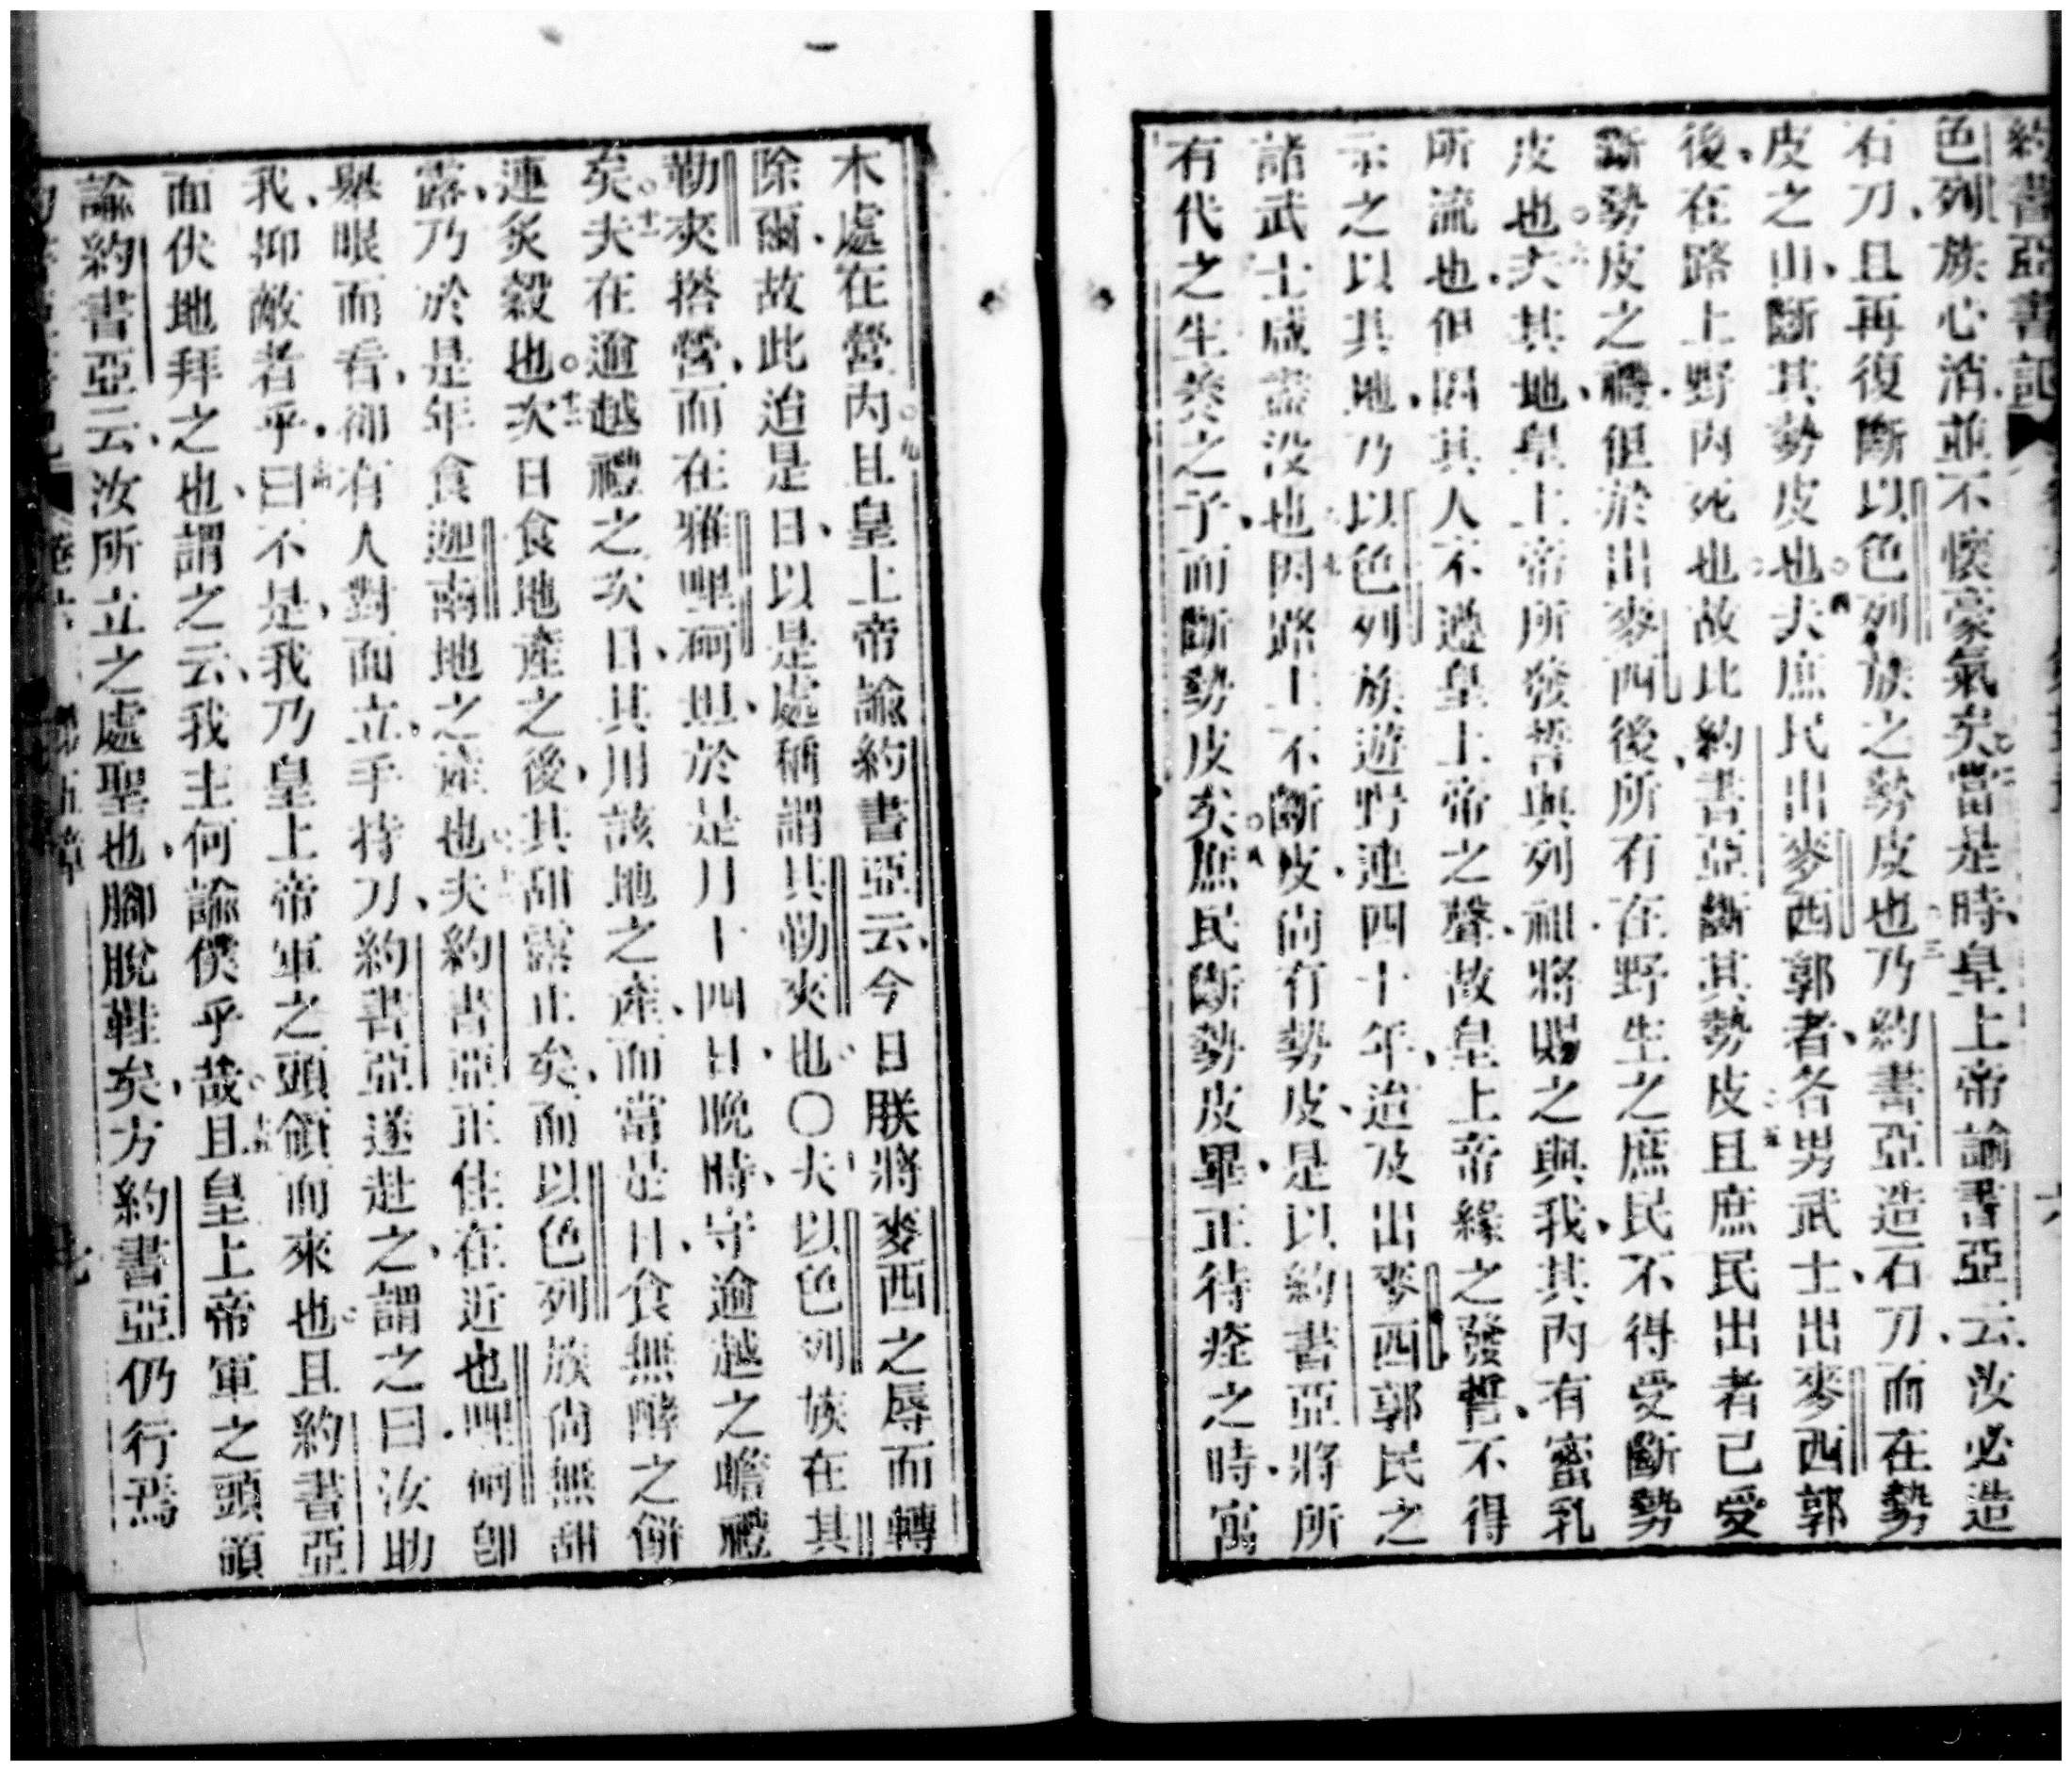 約書亞書記
六
色列族心消並不懷豪氣矣當是時皇上帝諭書亞云汝必造
石刀且再復斷以色列族之勢皮也乃約書亞造石刀而在勢
皮之山斷其勢皮也夫庶民出麥西郭者各男武士出麥西郭
後在路上野內死也故此約書亞斷其勢皮且庶民出者已受
斷勢皮之禮但於出麥西後所有在野生之庶民不得受斷勢
皮也夫其地皇上帝所發誓與列祖將賜之與我其內有蜜乳
所流也但因其人不遵皇上帝之聲故皇上帝緣之發誓不得
示之以其地乃以色列族遊野連四十年迨及出麥西郭民之
諸武士咸盡沒也因路上不斷皮尚有勢皮是以約書亞將所
有代之生養之子而斷勢皮矣庶民斷勢皮畢正待痊之時寓
木處在營內且皇上帝諭約書亞云今日朕將麥西之辱而轉
除爾故此迨是日以是處稱謂其勒夾也〇夫以色列族在其
勒夾搭營而在雅哩𠵽坦於是月十四日晚時守逾越之瞻禮
矣夫在逾越禮之次日其用該地之產而當是日食無酵之餅
連炙穀也次日食地產之後其甜露止矣而以色列族尚無甜
露乃於是年食迦南地之產也夫約書亞正住在近也哩𠵽卽
舉眼而看卻有人對面立手持刀約書亞遂赴之謂之曰汝助
我抑敵者乎曰不是我乃皇上帝軍之頭領而來也且約書亞
面伏地拜之也謂之云我主何諭僕乎哉且皇上帝軍之頭領
諭約書亞云汝所立之處聖也腳脫鞋矣方約書亞仍行焉